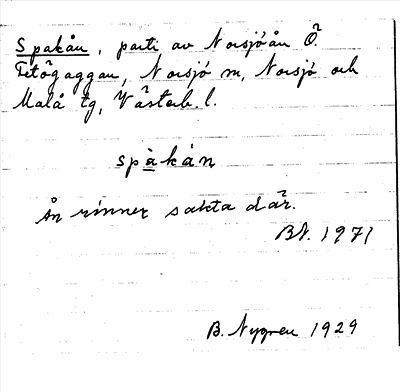 Spakån, parti av Norsjöån Ö.
Tetögaggan, Norsjö sn, Norsjö och
Malå tg, Västerb. l.
spàkán
Ån rinner sakta där.
BN. 1971
B. Nygren 1929